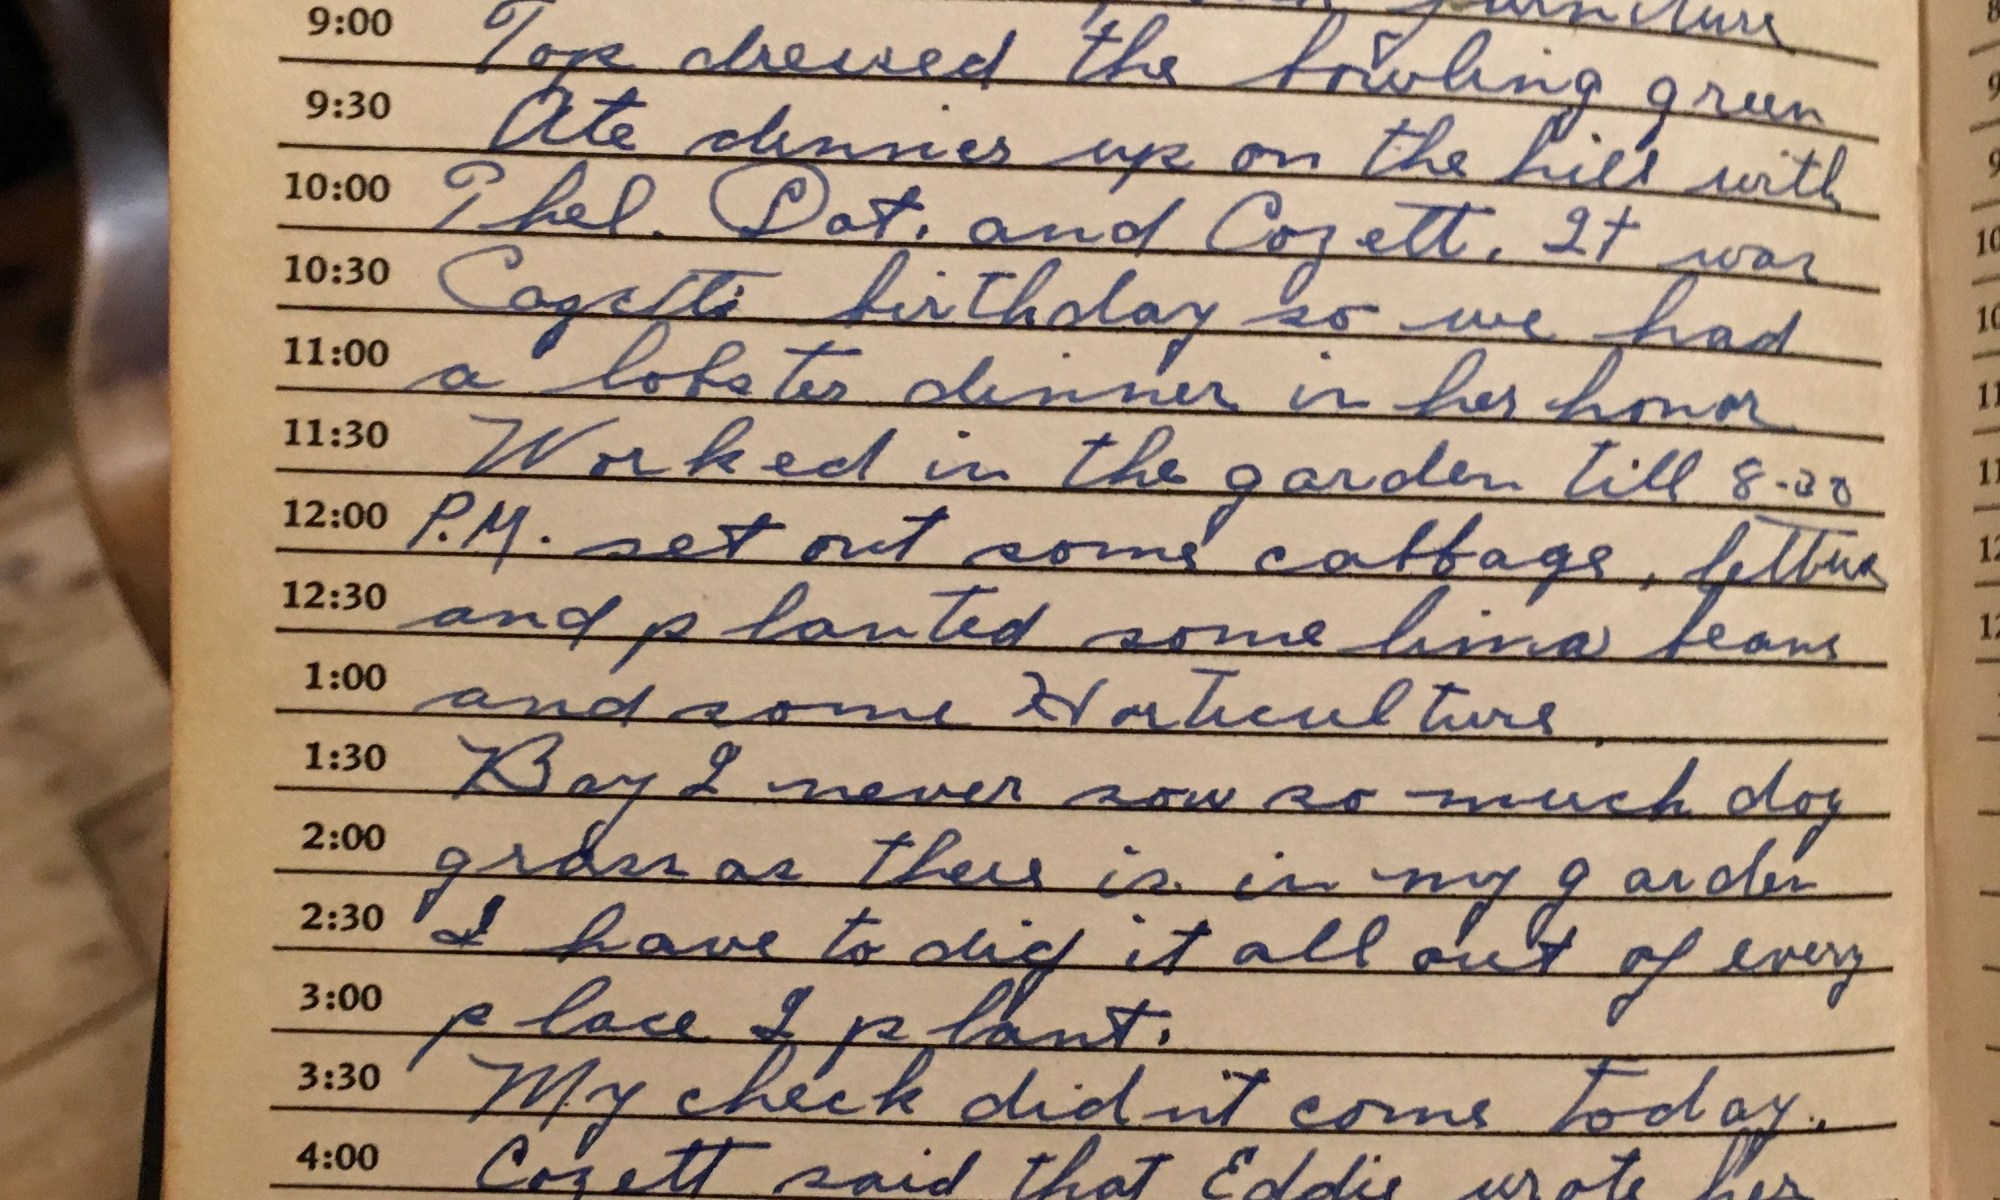 furniture
9:00 Top dressed the bowling green
9:30 Ate dinner up on the hill with
10:00 Phel. Dot. and Cozett. It was
10:30 Cozetts birthday so we had
11:00 a lobster dinner in her honor
11:30 Worked in the garden till 8-30
12:00 P.M. set out some cabbage, lettuce
12:30 and planted some lima beans
1:00 and some Horticulture.
1:30 Boy I never sow so much dog
2:00 grass as there is in my garden
2:30 I have to dig it all out of every
3:00 place I plant.
3:30 My check didnt come today.
4:00 Cozett said that Eddie wrote her
8
9
9
10
10
11
11
12
12